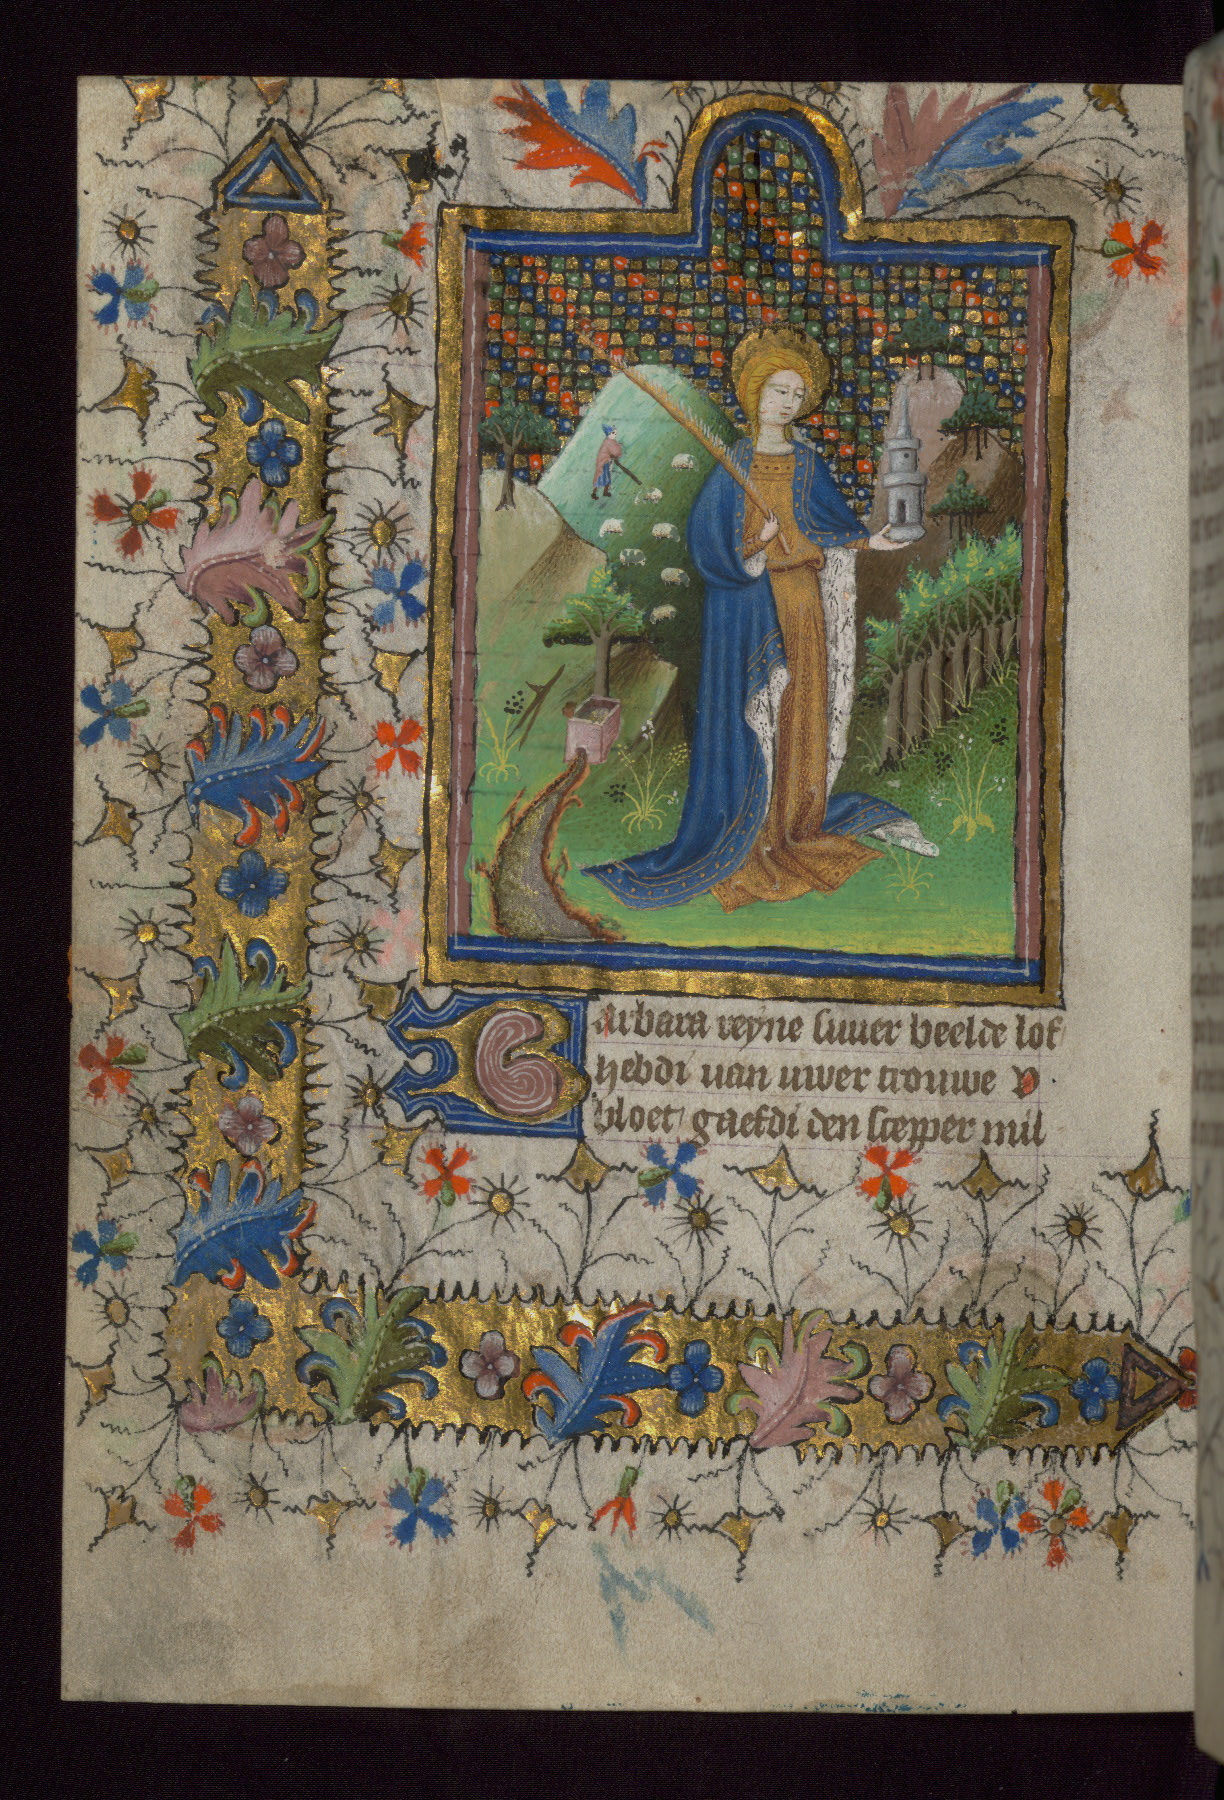 Barbara reyne suuer beelde lof
hebdi uan uwer trouwe v
bloet gaefdi den scepper mil